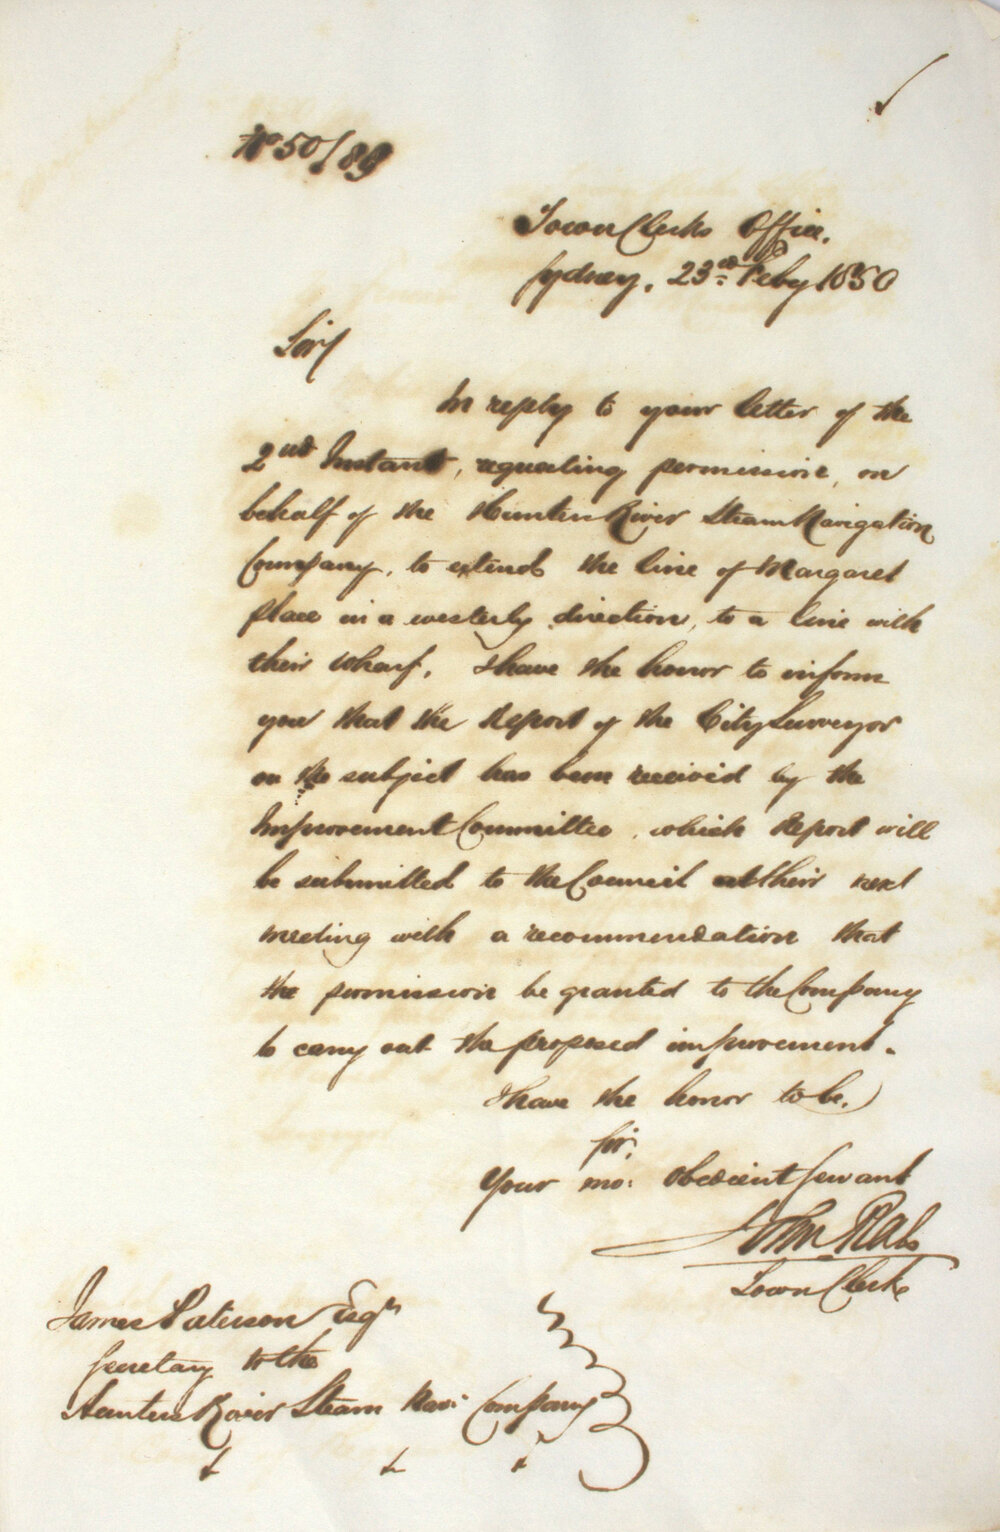 No 50/89
Town Clerks Office.
Sydney, 23rd Feby 1850
Sir/
In reply to your letter of the
2nd Instant, requesting permission, on
behalf of the Hunter River Steam Navigation
Company, to extend the line of Margaret
place in a westerly direction, to a line with
their Wharf, I have the honor to inform
you that the Report of the City Surveyor
on the subject has been received by the
Improvement Committee, which Report will
be submitted to the Council at their next
meeting with a recommendation that
the permission be granted to the Company
to carry out the proposed improvement.
I have the honor to be,
Sir,
Your mo: obedient Servant
John Rae
Town Clerk
James Paterson Esqr
Secretary to the
Hunter River Steam Navi: Company